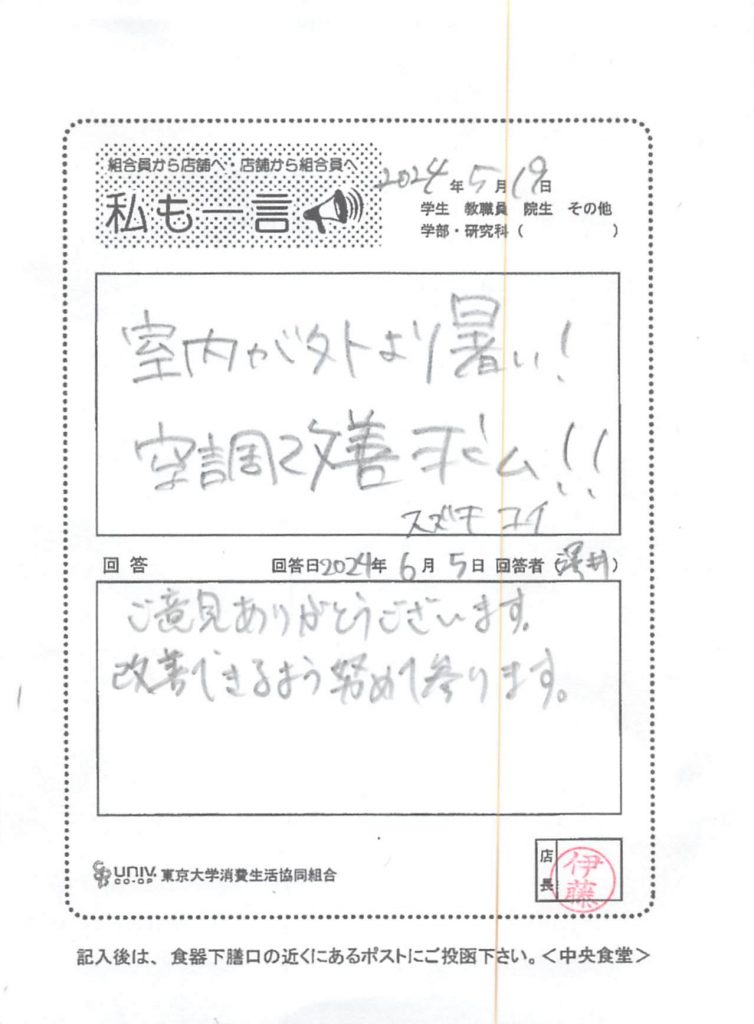 組合員から店舗へ・店舗から組合員へ
私も一言
2024年5月19日
学生 教職員 院生 その他
学部・研究科（ ）
室内が外より暑い!
空調改善求ム!!
回答 回答日2024年6月5日 回答者（澤井）
ご意見ありがとうございます。
改善できるよう努めて参ります。
univ. CO-OP 東京大学消費生活協同組合
店長 伊藤
記入後は、食器下膳口の近くにあるポストにご投函下さい。＜中央食堂＞